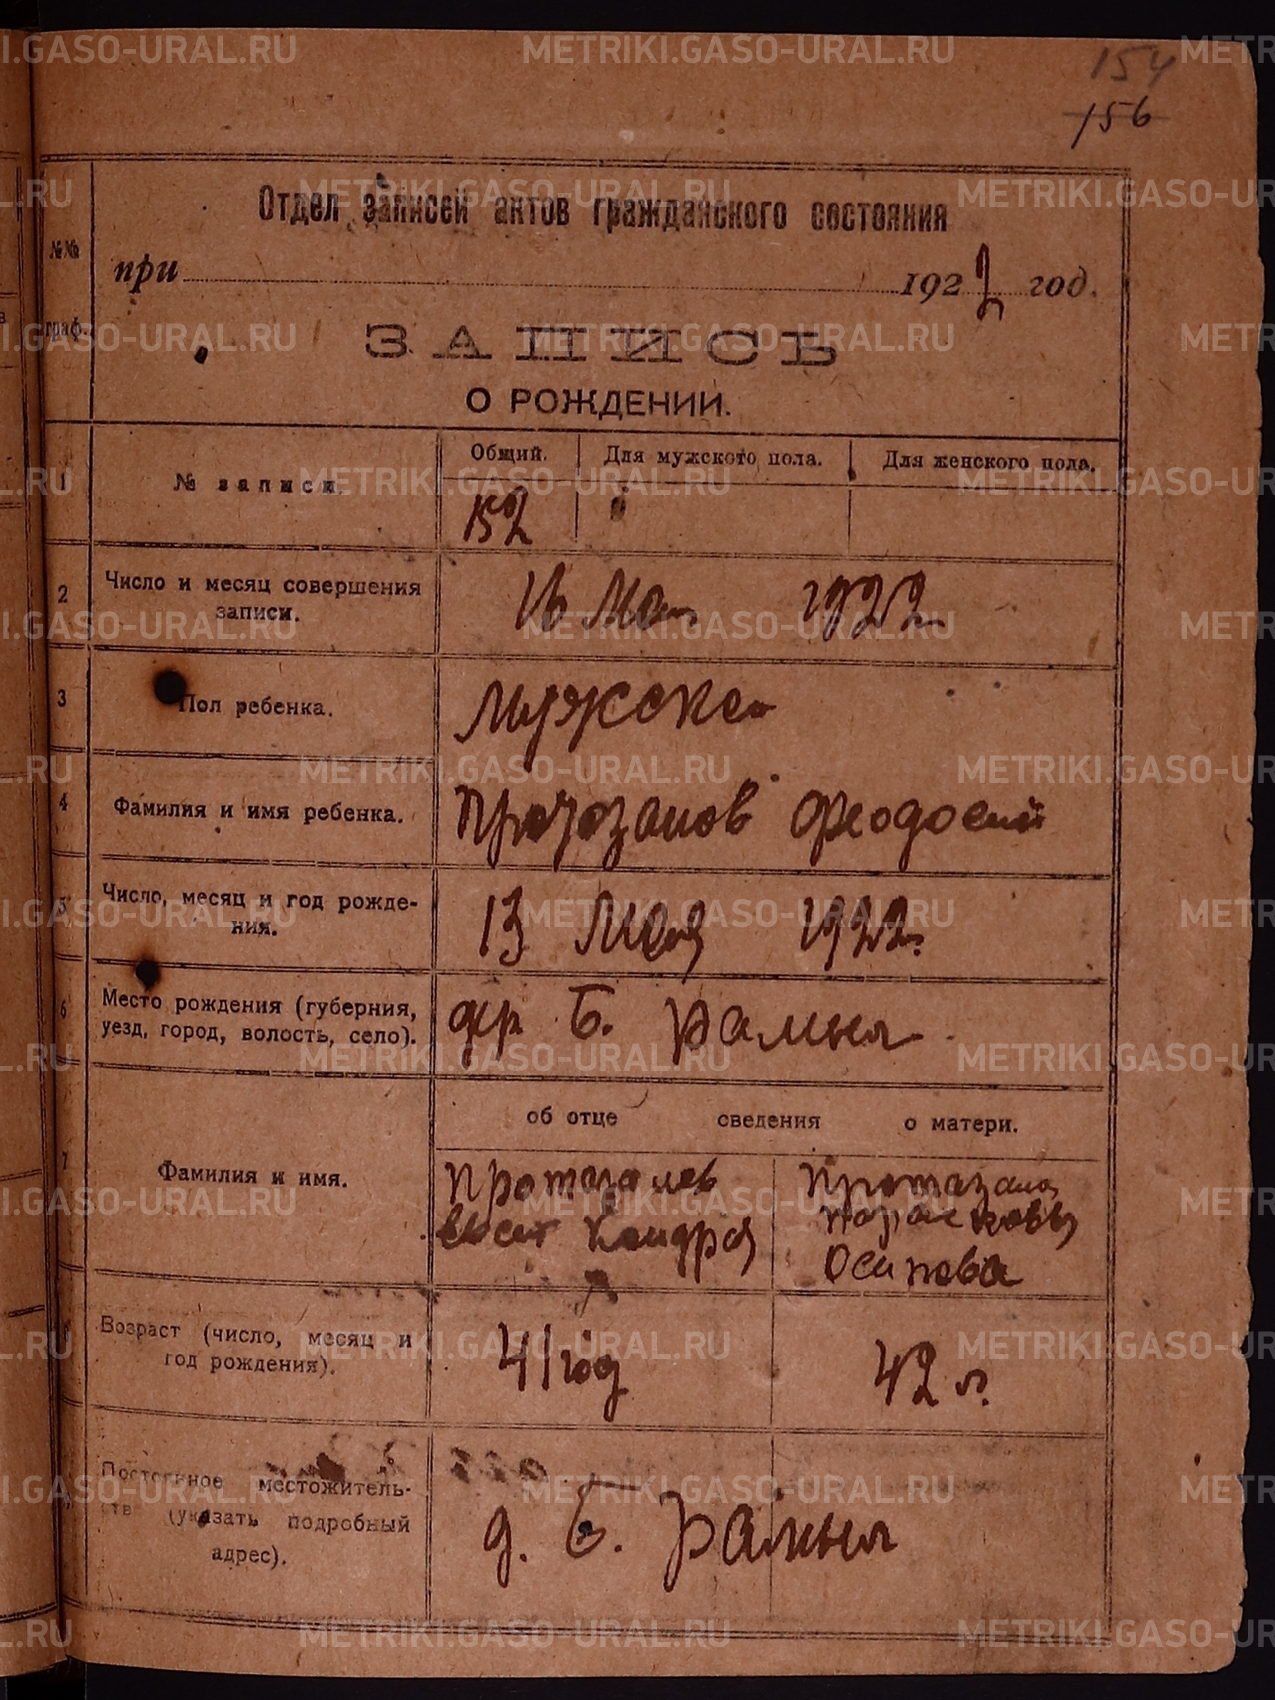 154
156
Отдел записей актов гражданского состояния
№№ граф.
при 1922 год.
ЗАПИСЬ
О РОЖДЕНИИ.
Общий. Для мужского пола. Для женского пола.
1 № записи.
152
2 Число и месяц совершения
записи.
16 Мая 1922
3 Пол ребенка.
мужской
4 Фамилия и имя ребенка.
Протозанов Феодосий
5 Число, месяц и год рожде-
ния.
13 Мая 1922.
6 Место рождения (губерния,
уезд, город, волость, село).
дер Б. Рамыл
об отце сведения о матери.
7 Фамилия и имя.
Протозанов
Кондра
Протазано
Парасковья
Осипова
8 Возраст (число, месяц и
год рождения).
41 год
42 л.
Постоянное местожитель-
ств (указать подробный
адрес).
д. Б. Рамыл
METRIKI.GASO-URAL.RU